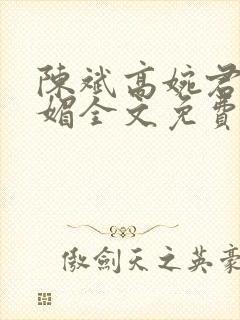 陳斌高婉君
媚全文免費
傲劍天之英豪